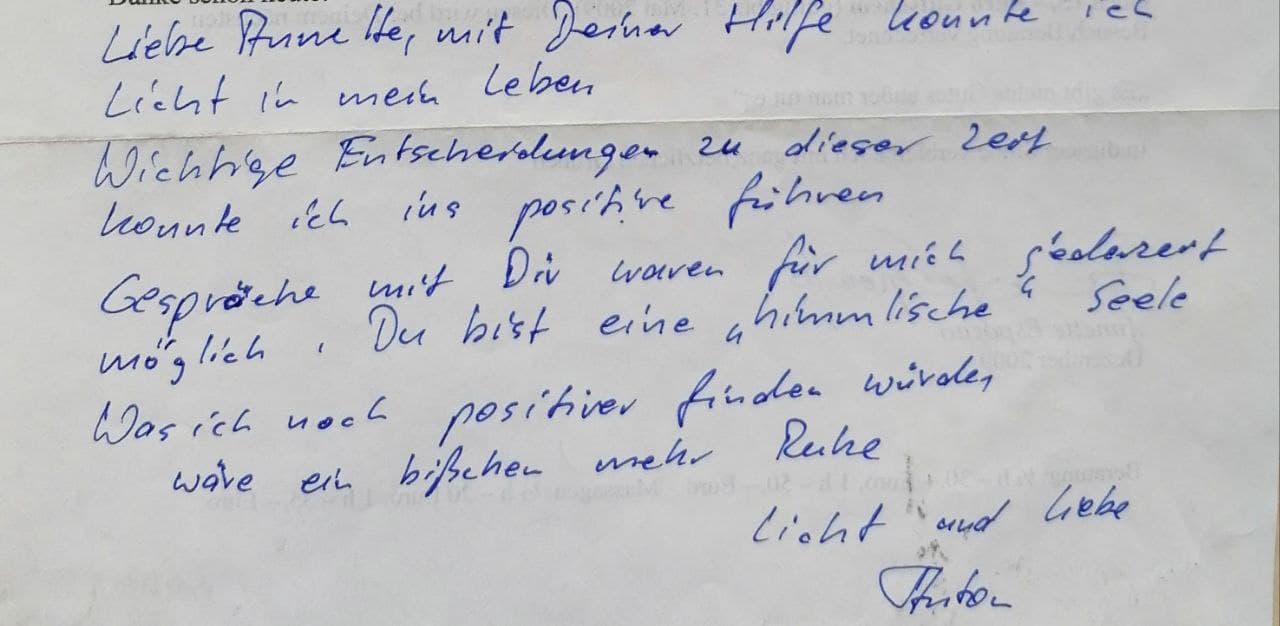 Danke schon heute.
Liebe Annette, mit Deiner Hilfe konnte ich
Licht in mein Leben
Wichtige Entscheidungen zu dieser Zeit
konnte ich ins positive führen
Gespräche mit Dir waren für mich jederzeit
möglich. Du bist eine „himmlische“ Seele
Was ich noch positiver finden würde,
wäre ein bißchen mehr Ruhe
Licht und Liebe
Anton